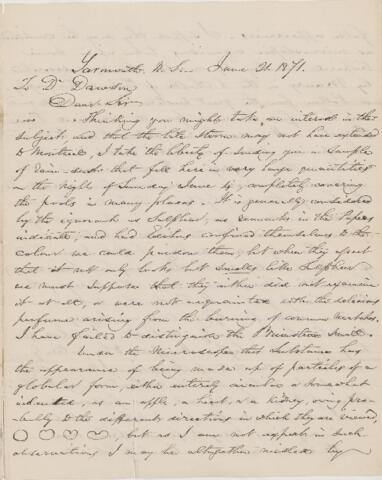 Yarmouth N. S. June 21. 1871.
To Dr Dawson
Dear Sir
Thinking you might take an interest in the
subject, and that the late storm may not have extended
to Montreal, I take the liberty of sending you a sample
of rain-dust that fell here in very large quantities
on the night of Sunday June 1, completely covering
the pools in many places. It is generally considered
by the ignorant as Sulphur, as remarks in the Papers
indicate; and had Editors confined themselves to the
colour we could pardon them, but when they assert
that it not only looks but smells like Sulphur
we must suppose that they either did not examine
it at all, or were not acquainted with the delicious
perfume arising from the burning of common matches.
I have failed to distinguish the Brimstone smell.
Under the Microscope this substance has
the appearance of being made up of particles of a
globular form, either entirely circular or somewhat
indented, as an apple, a heart, or a kidney, owing pro-
bably to the different directions in which they are viewed,
but as I am not expert in such
observations I may be altogether misled by